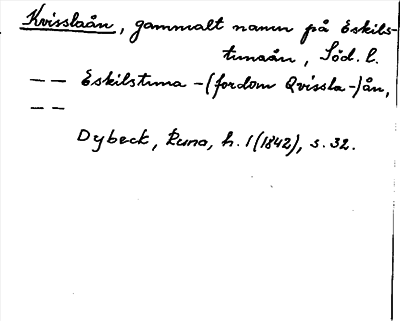 Kvisslaån, gammalt namn på Eskils-
tunaån, Söd. l.
— — Eskilstuna-(fordom Qvissla-)ån,
— —
Dybeck, Runa, h. 1 (1842), s. 32.